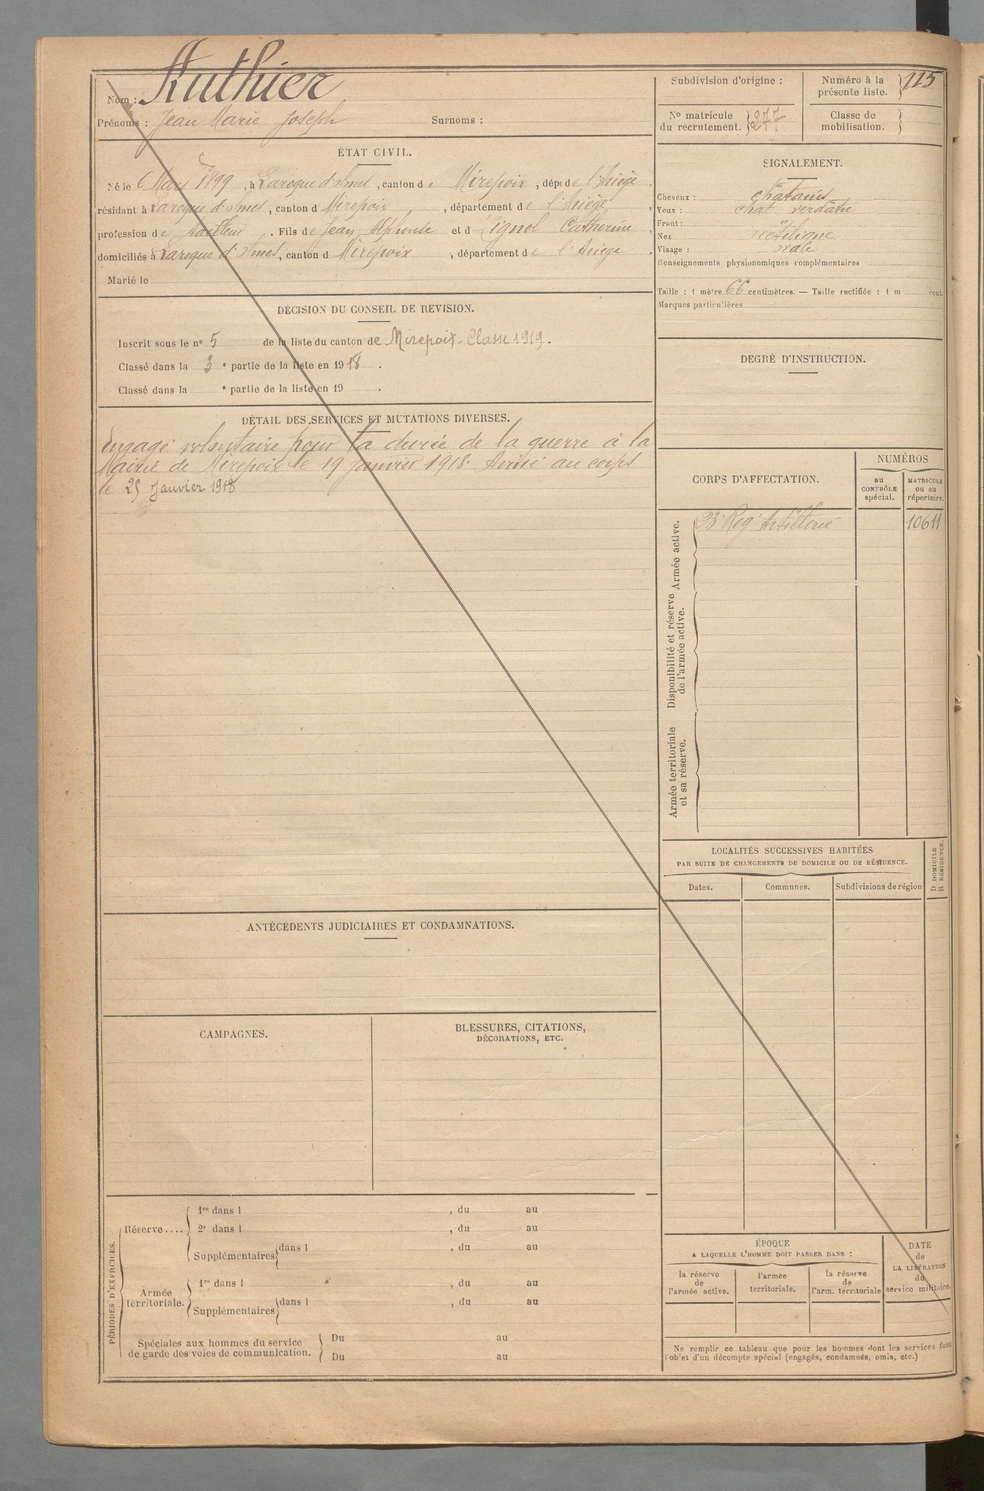 Nom : Authier
Prénoms : Jean Marie Joseph Surnoms :
ÉTAT CIVIL.
Né le 6 Mars 1899, à Laroque d'Olmes, canton de Mirepoix, dépt de l'Ariège
résidant à Laroque d'Olmes, canton d Mirepoix, département de l'Ariège
profession de tailleur. Fils de Jean Alphonse et d Pignol Catherine
domiciliés à Laroque d'Olmes, canton d Mirepoix, département de l'Ariège
Marié le
DÉCISION DU CONSEIL DE REVISION.
Inscrit sous le n° 5 de la liste du canton de Mirepoix - Classe 1919.
Classé dans la 3e partie de la liste en 1918.
Classé dans la e partie de la liste en 19 .
DÉTAIL DES SERVICES ET MUTATIONS DIVERSES.
Engagé volontaire pour la durée de la guerre à la
Mairie de Mirepoix le 19 janvier 1918. Arrivé au corps
le 25 Janvier 1918
ANTÉCÉDENTS JUDICIAIRES ET CONDAMNATIONS.
CAMPAGNES.
BLESSURES, CITATIONS,
DÉCORATIONS, ETC.
PÉRIODES D'EXERCICES.
Réserve....
1re dans l , du au
2e dans l , du au
Supplémentaires dans l , du au
Armée territoriale.
1re dans l , du au
Supplémentaires dans l , du au
Spéciales aux hommes du service
de garde des voies de communication.
Du au
Du au
Subdivision d'origine :
Numéro à la présente liste. 115
No matricule du recrutement. 277
Classe de mobilisation.
SIGNALEMENT.
Cheveux : châtains
Yeux : chat verdâtre
Front :
Nez rectiligne
Visage : ovale
Renseignements physionomiques complémentaires
Taille : 1 mètre 66 centimètres. — Taille rectifiée : 1 m cent.
Marques particulières
DEGRÉ D'INSTRUCTION.
CORPS D'AFFECTATION.
NUMÉROS
AU CONTRÔLE spécial.
MATRICULE ou au répertoire.
Armée active.
23e Regt Artillerie 10611
Disponibilité et réserve
de l'armée active.
Armée territoriale
et sa réserve.
LOCALITÉS SUCCESSIVES HABITÉES
PAR SUITE DE CHANGEMENTS DE DOMICILE OU DE RÉSIDENCE.
Dates. Communes. Subdivisions de région
D DOMICILE
R RÉSIDENCE.
ÉPOQUE
A LAQUELLE L'HOMME DOIT PASSER DANS :
la réserve de l'armée active.
l'armée territoriale.
la réserve de l'arm. territoriale
DATE de LA LIBÉRATION du service militaire.
Ne remplir ce tableau que pour les hommes dont les services font
l'objet d'un décompte spécial (engagés, condamnés, omis, etc.)